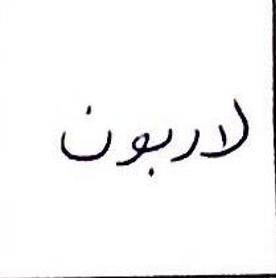 لاربون